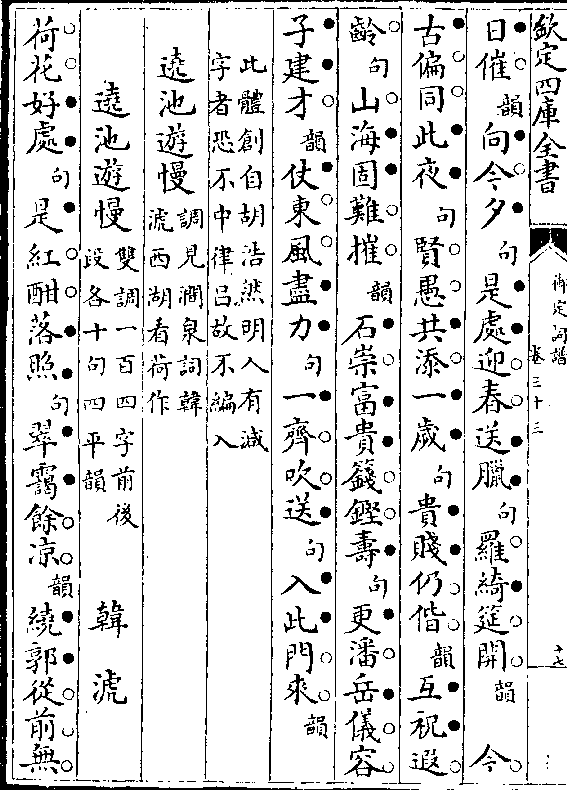 欽定四庫全書
御定詞譜
卷三十三
十七
日催韻向今夕句是處迎春送臘句羅綺筵開韻今
古偏同此夜句賢愚共添一歲句貴賤仍偕韻互祝遐
齡句山海固難摧韻石崇富貴籛鏗壽句更潘岳儀容
子建才韻仗東風盡力句一齊吹送句入此門來韻
此體創自胡浩然明人有減
字者恐不中律吕故不編入
遶池遊慢調見澗泉詞韓
淲西湖看荷作
遶池遊慢雙調一百四字前後
段各十句四平韻
韓淲
荷花好處句是紅酣落照句翠靄餘凉韻繞郭從前無